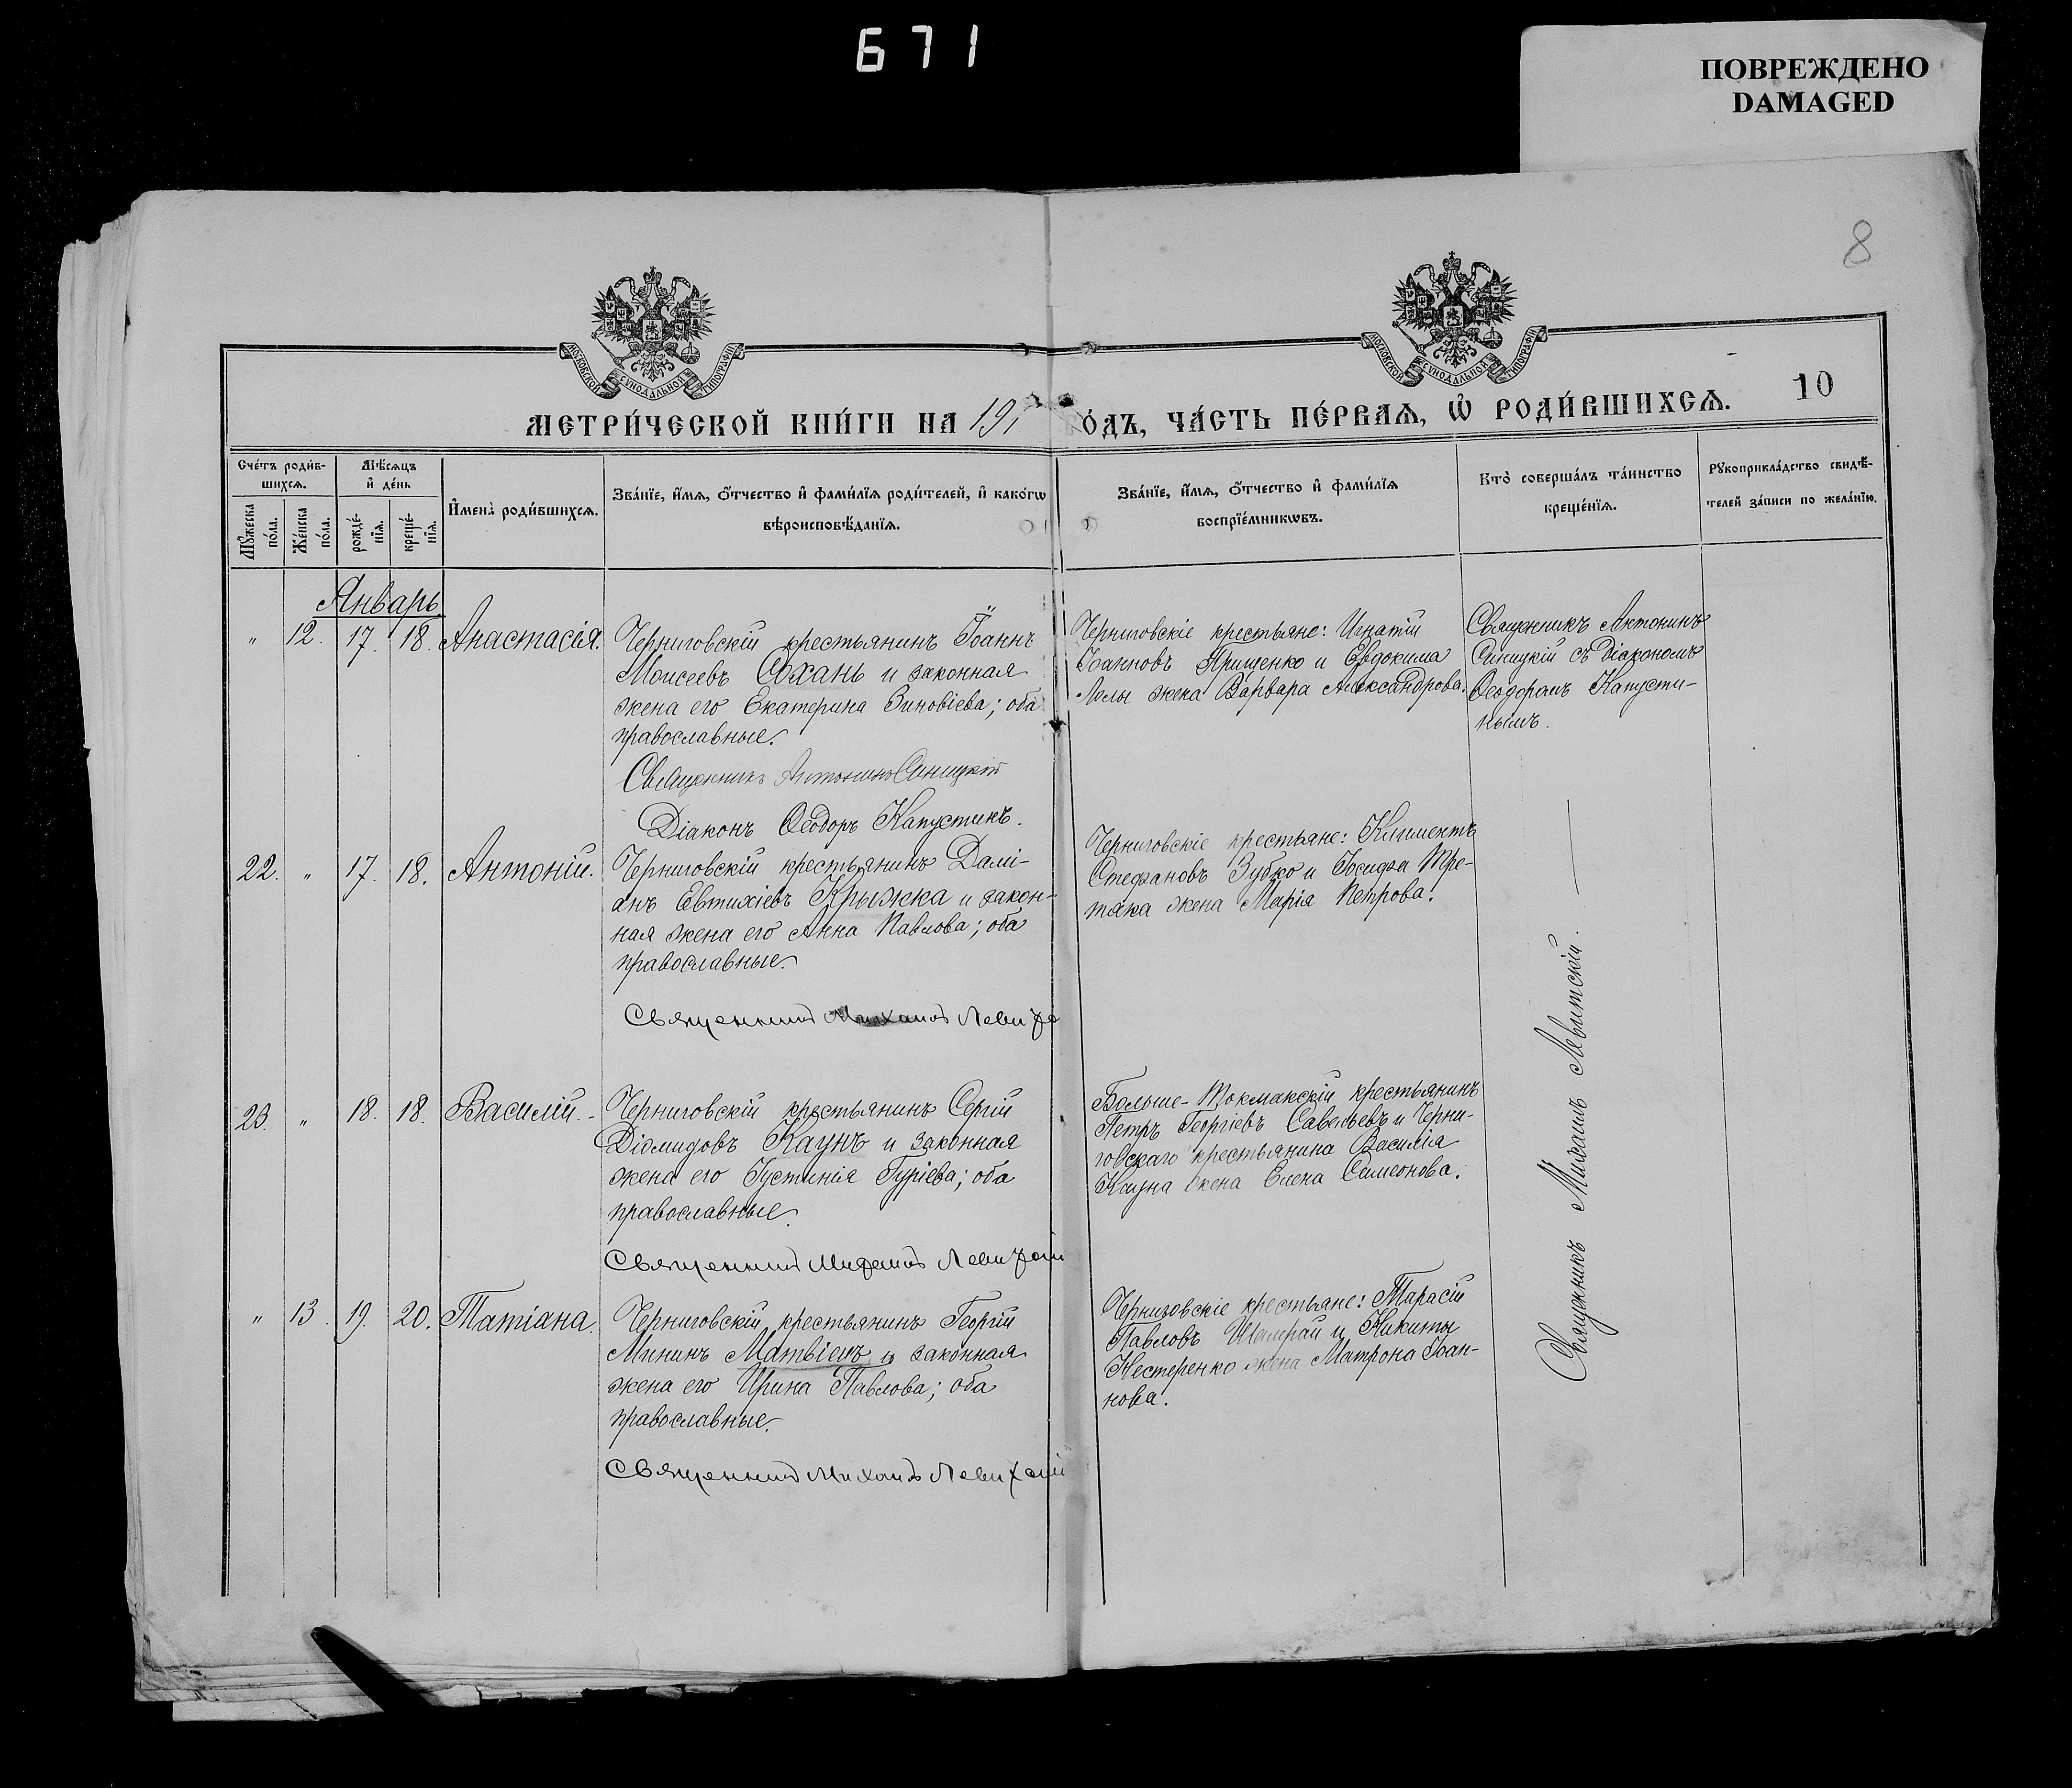 671
ПОВРЕЖДЕНО
DAMAGED
8
МОСКОВСКОЙ СѴНОДАЛЬНОЙ ТИПОГРАФІИ
МОСКОВСКОЙ СѴНОДАЛЬНОЙ ТИПОГРАФІИ
10
МЕТРИ́ЧЕСКОЙ КНИ́ГИ НА 191
ОДЪ, ЧА́СТЬ ПЕ́РВАѦ, Ѡ҆ РОДИ́ВШИХСѦ.
Сче́тъ роди́в-
шихсѧ.
Мꙋ́жеска
по́ла.
Же́нска
по́ла.
Мѣ́сѧцъ
и҆ де́нь
рожде́-
нїѧ.
креще́-
нїѧ.
И҆мена̀ роди́вшихсѧ.
Зва́нїе, и҆́мѧ, о҆́тчество и҆ фами́лїѧ роди́телей, и҆ како́гѡ
вѣроисповѣ́данїѧ.
Зва́нїе, и҆́мѧ, о҆́тчество и҆ фами́лїѧ
воспрїе́мникѡвъ.
Кто̀ соверша́лъ та́инство
креще́нїѧ.
Рꙋкоприкла́дство свидѣ́-
телей за́писи по жела́нїю.
Январь
" 12. 17. 18. Анастасія.
Черниговскій крестьянинъ Іоаннъ
Моисеевъ и законная
жена его Екатерина Зиновіева; оба
православные.
Священникъ Антонинъ Синицкій
Діаконъ Ѳеодоръ Капустинъ.
Черниговскіе крестьяне: Игнатій
Іоанновъ Прищенко и Евдокима
Лелы жена Варвара Александрова.
Священникъ Антонинъ
Синицкій съ діакономъ
Ѳеодоромъ Капусти-
нымъ.
22. " 17. 18. Антоній.
Черниговскій крестьянинъ Дамі-
анъ Евтихіевъ Крыжка и закон-
ная жена его Анна Павлова; оба
православные.
Священникъ Михаилъ
Черниговскіе крестьяне: Климентъ
Стефановъ Зубко и Іосифа Тре-
тяка жена Марія Петрова.
23. " 18. 18. Василій.
Черниговскій крестьянинъ Сергій
Діомидовъ Каунъ и законная
жена его Іустинія Гуріева; оба
православные.
Священникъ Михаилъ Левитскій
Больше-Токмакскій крестьянинъ
Петръ Георгіевъ Савельевъ и Черни-
говскаго крестьянина Василія
Кауна жена Елена Симеонова.
" 13. 19. 20. Татіана.
Черниговскій крестьянинъ Георгій
Мининъ Матвіецъ и законная
жена его Ирина Павлова; оба
православные.
Священникъ Михаилъ Левитскій
Черниговскіе крестьяне: Тарасій
Павловъ Шамрай и Никиты
Нестеренко жена Матрона Іоан-
нова.
Священникъ Михаилъ Левитскій.